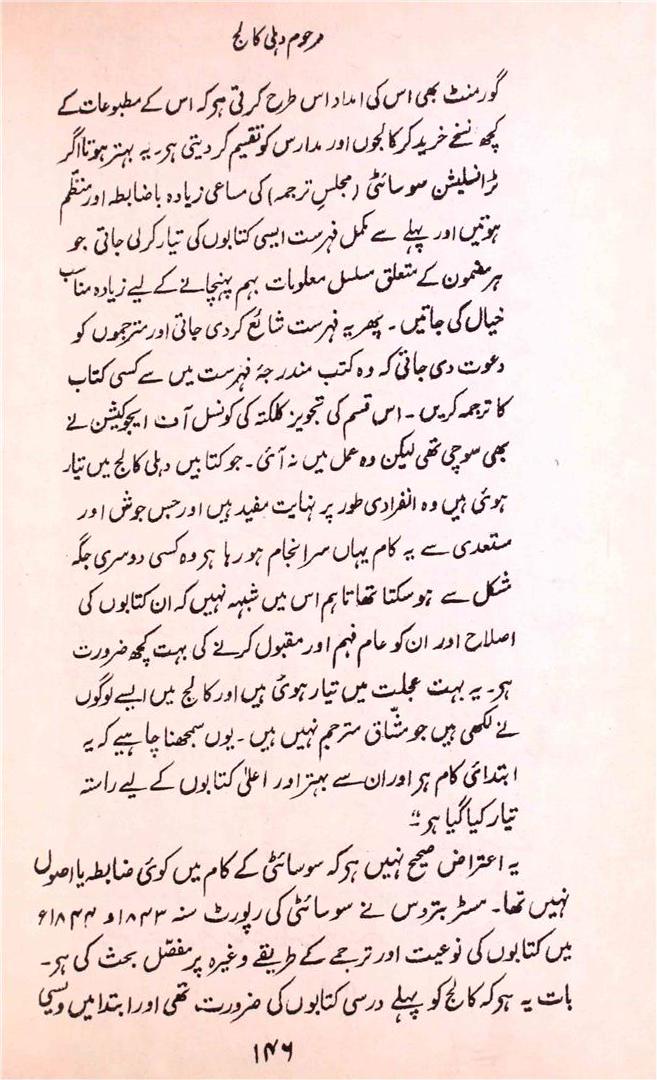 مرحوم دہلی کالج
گورمنٹ بھی اس کی امداد اس طرح کرتی ہو کہ اس کے مطبوعات کے
کچھ نسخے خرید کر کالجوں اور مدارس کو تقسیم کر دیتی ہو۔ یہ بہتر ہوتا اگر
ٹرانسلیشن سوسائٹی (مجلسِ ترجمہ) کی مساعی زیادہ باضابطہ اور منظّم
ہوتیں اور پہلے سے مکمل فہرست ایسی کتابوں کی تیار کر لی جاتی جو
ہر مضمون کے متعلق مسلسل معلومات بہم پہنچانے کے لیے زیادہ مناسب
خیال کی جاتیں۔ پھر یہ فہرست شائع کردی جاتی اور مترجموں کو
دعوت دی جاتی کہ وہ کتب مندرجۂ فہرست میں سے کسی کتاب
کا ترجمہ کریں۔ اس قسم کی تجویز کلکتہ کی کونسل آف ایجوکیشن نے
بھی سوچی تھی لیکن وہ عمل میں نہ آئی۔ جو کتابیں دہلی کالج میں تیار
ہوئی ہیں وہ انفرادی طور پر نہایت مفید ہیں اور جس جوش اور
مستعدی سے یہ کام یہاں سرانجام ہو رہا ہو وہ کسی دوسری جگہ
مشکل سے ہو سکتا تھا تاہم اس میں شبہہ نہیں کہ ان کتابوں کی
اصلاح اور ان کو عام فہم اور مقبول کرنے کی بہت کچھ ضرورت
ہو۔ یہ بہت عجلت میں تیار ہوئی ہیں اور کالج میں ایسے لوگوں
نے لکھی ہیں جو مشّاق مترجم نہیں ہیں۔ یوں سمجھنا چاہیے کہ یہ
ابتدائی کام ہو اور ان سے بہتر اور اعلیٰ کتابوں کے لیے راستہ
تیار کیا گیا ہو"
یہ اعتراض صحیح نہیں ہو کہ سوسائٹی کے کام میں کوئی ضابطہ یا اصول
نہیں تھا۔ مسٹر بتروس نے سوسائٹی کی رپورٹ سنہ ۱۸۴۳ و ۱۸۴۴ء
میں کتابوں کی نوعیت اور ترجمے کے طریقے وغیرہ پر مفصّل بحث کی ہو۔
بات یہ ہو کہ کالج کو پہلے درسی کتابوں کی ضرورت تھی اور ابتدا میں ویسی
۱۴۶